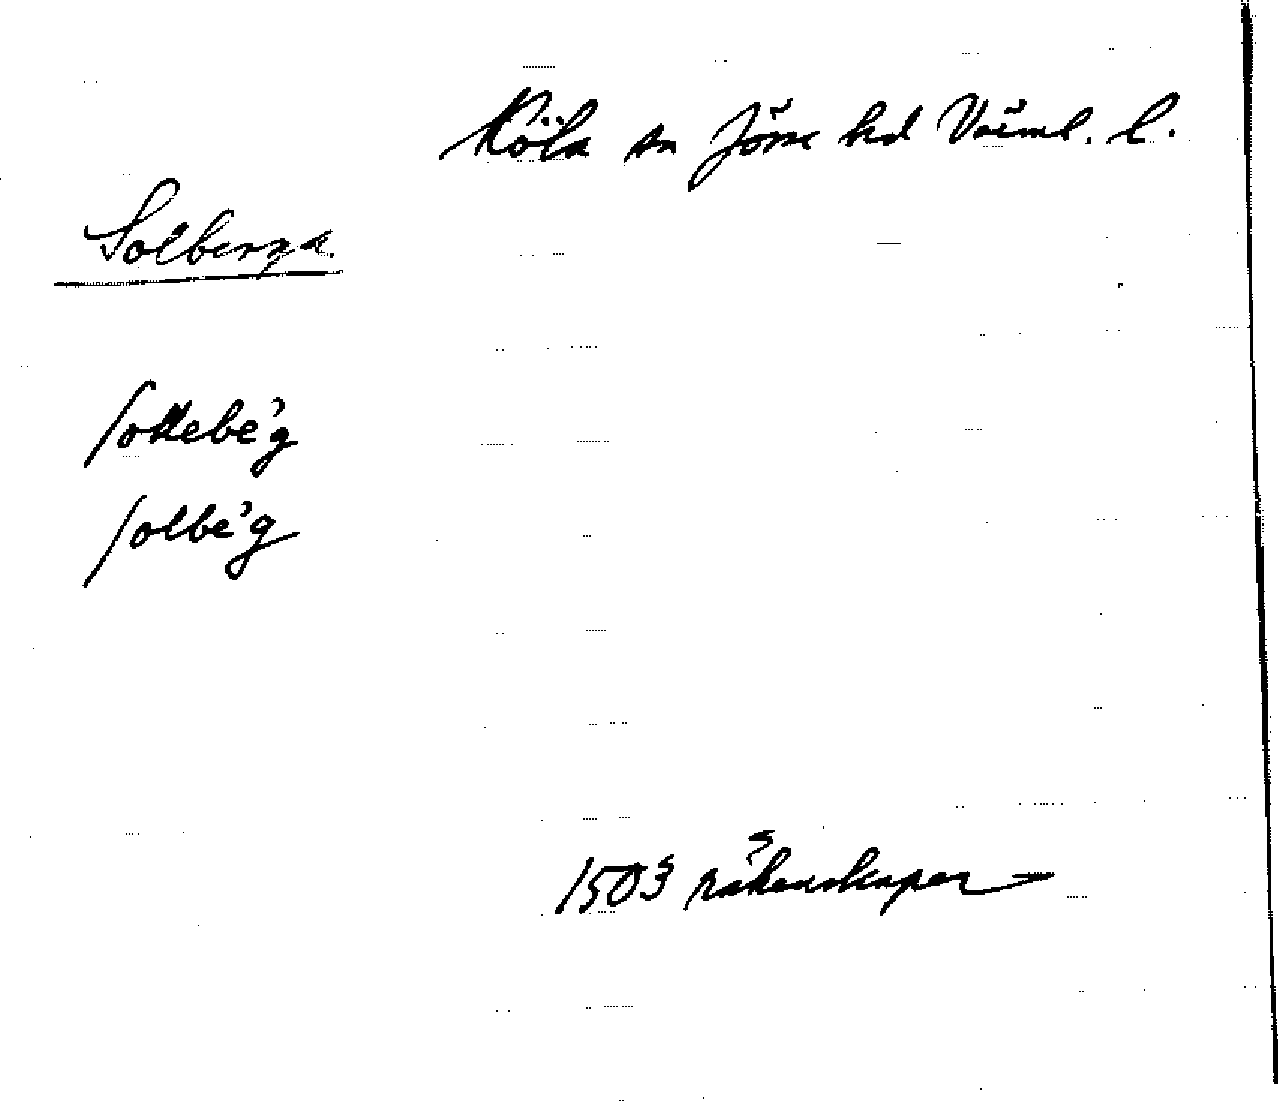 Köla sn Jösse hd Värml. l.
Solberga.
sollebe'g
solbe'g
1503 räkenskaper